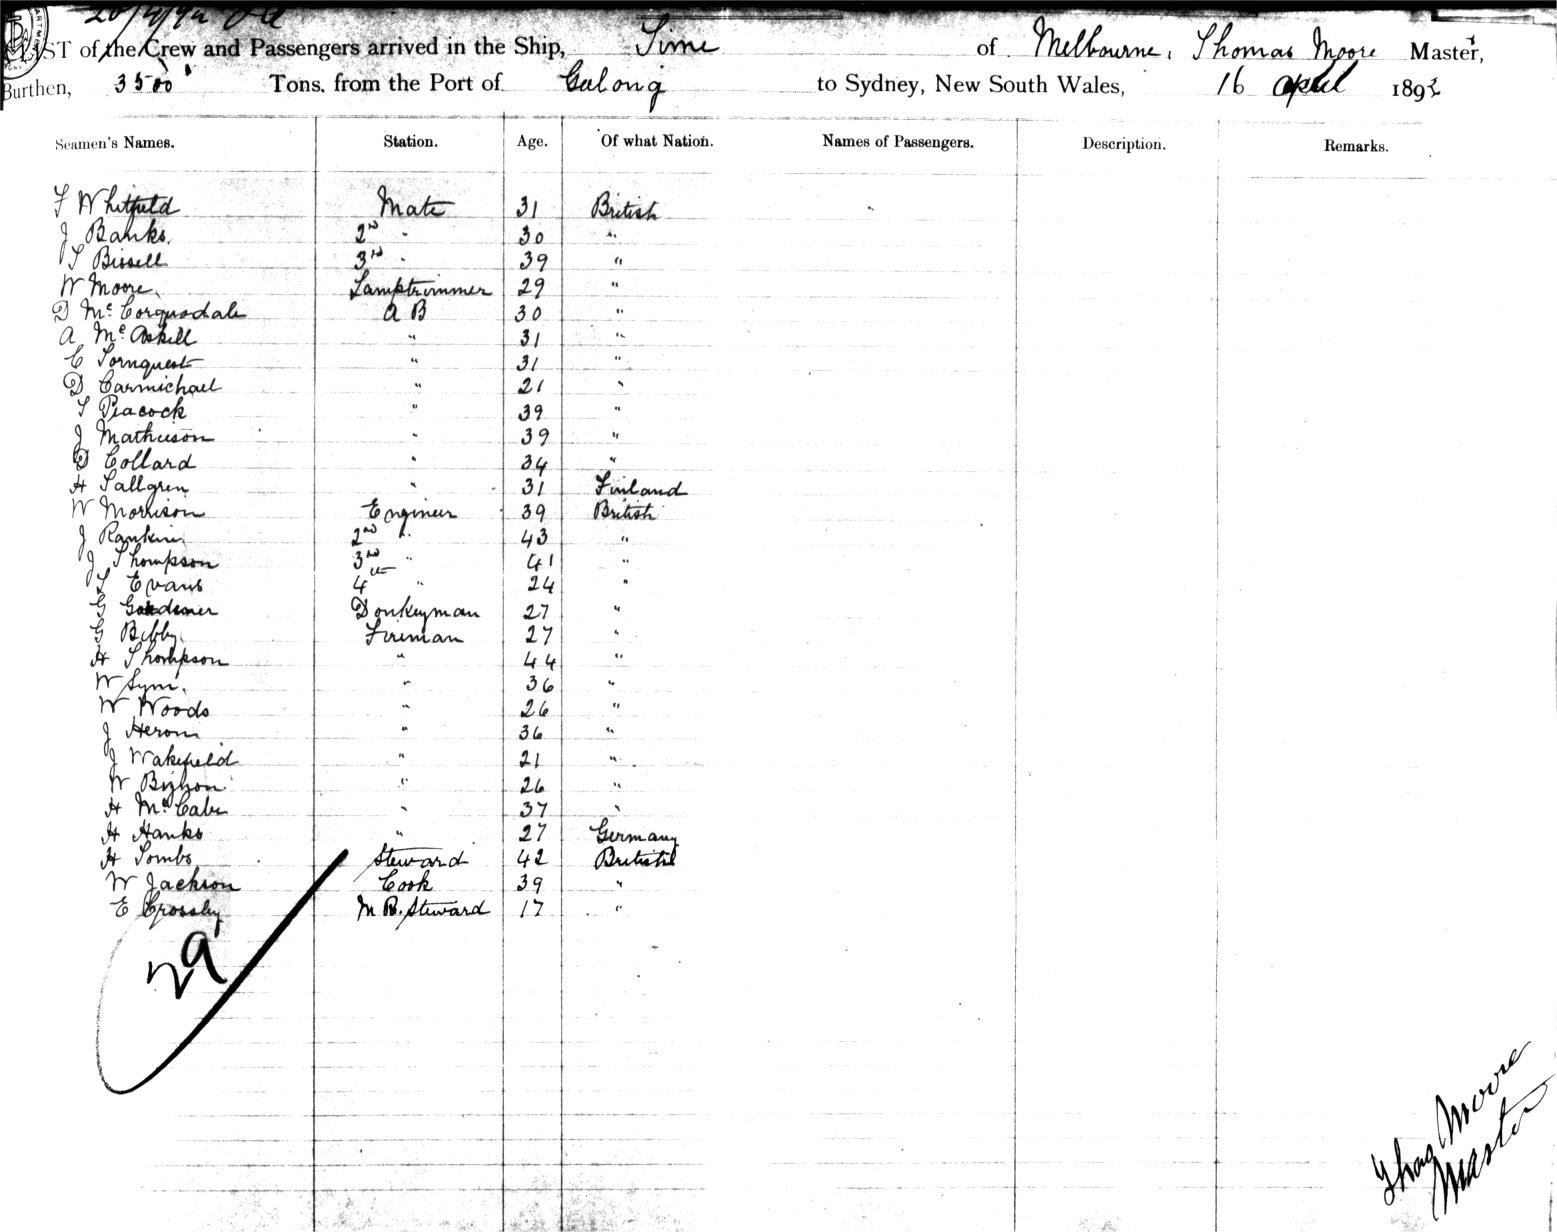 20/4/92
LIST of the Crew and Passengers arrived in the Ship, Time of Melbourne, Thomas Moore Master,
Burthen, 3500 Tons. from the Port of Gelong to Sydney, New South Wales, 16 April 1892
Seamen's Names. Station. Age. Of what Nation. Names of Passengers. Description. Remarks.
F Whitfield Mate 31 British
J Banks. 2nd " 30 "
T Bissell 3rd " 39 "
W Moore. Lamptrimmer 29 "
D McCorquodale A B 30 "
A McAskill " 31 "
C Tornquest " 31 "
D Carmichael " 21 "
T Peacock " 39 "
J Mathieson " 39 "
D Collard " 34 "
H Sallgren " 31 Finland
W Morrison Engineer 39 British
J Rankin 2nd " 43 "
J Thompson 3rd " 41 "
Evans 4th " 24 "
G Gardener Donkeyman 27 "
G Bibby. Fireman 27 "
H Thompson " 44 "
W Sym. " 36 "
W Woods " 26 "
J Heron " 36 "
J Wakefield " 21 "
W " 26 "
H McCabe " 37 "
H Hanks " 27 Germany
H Tombs Steward 42 British
W Jackson Cook 39 "
E Crossley M R. Steward 17 "
29
Thos Moore
Master